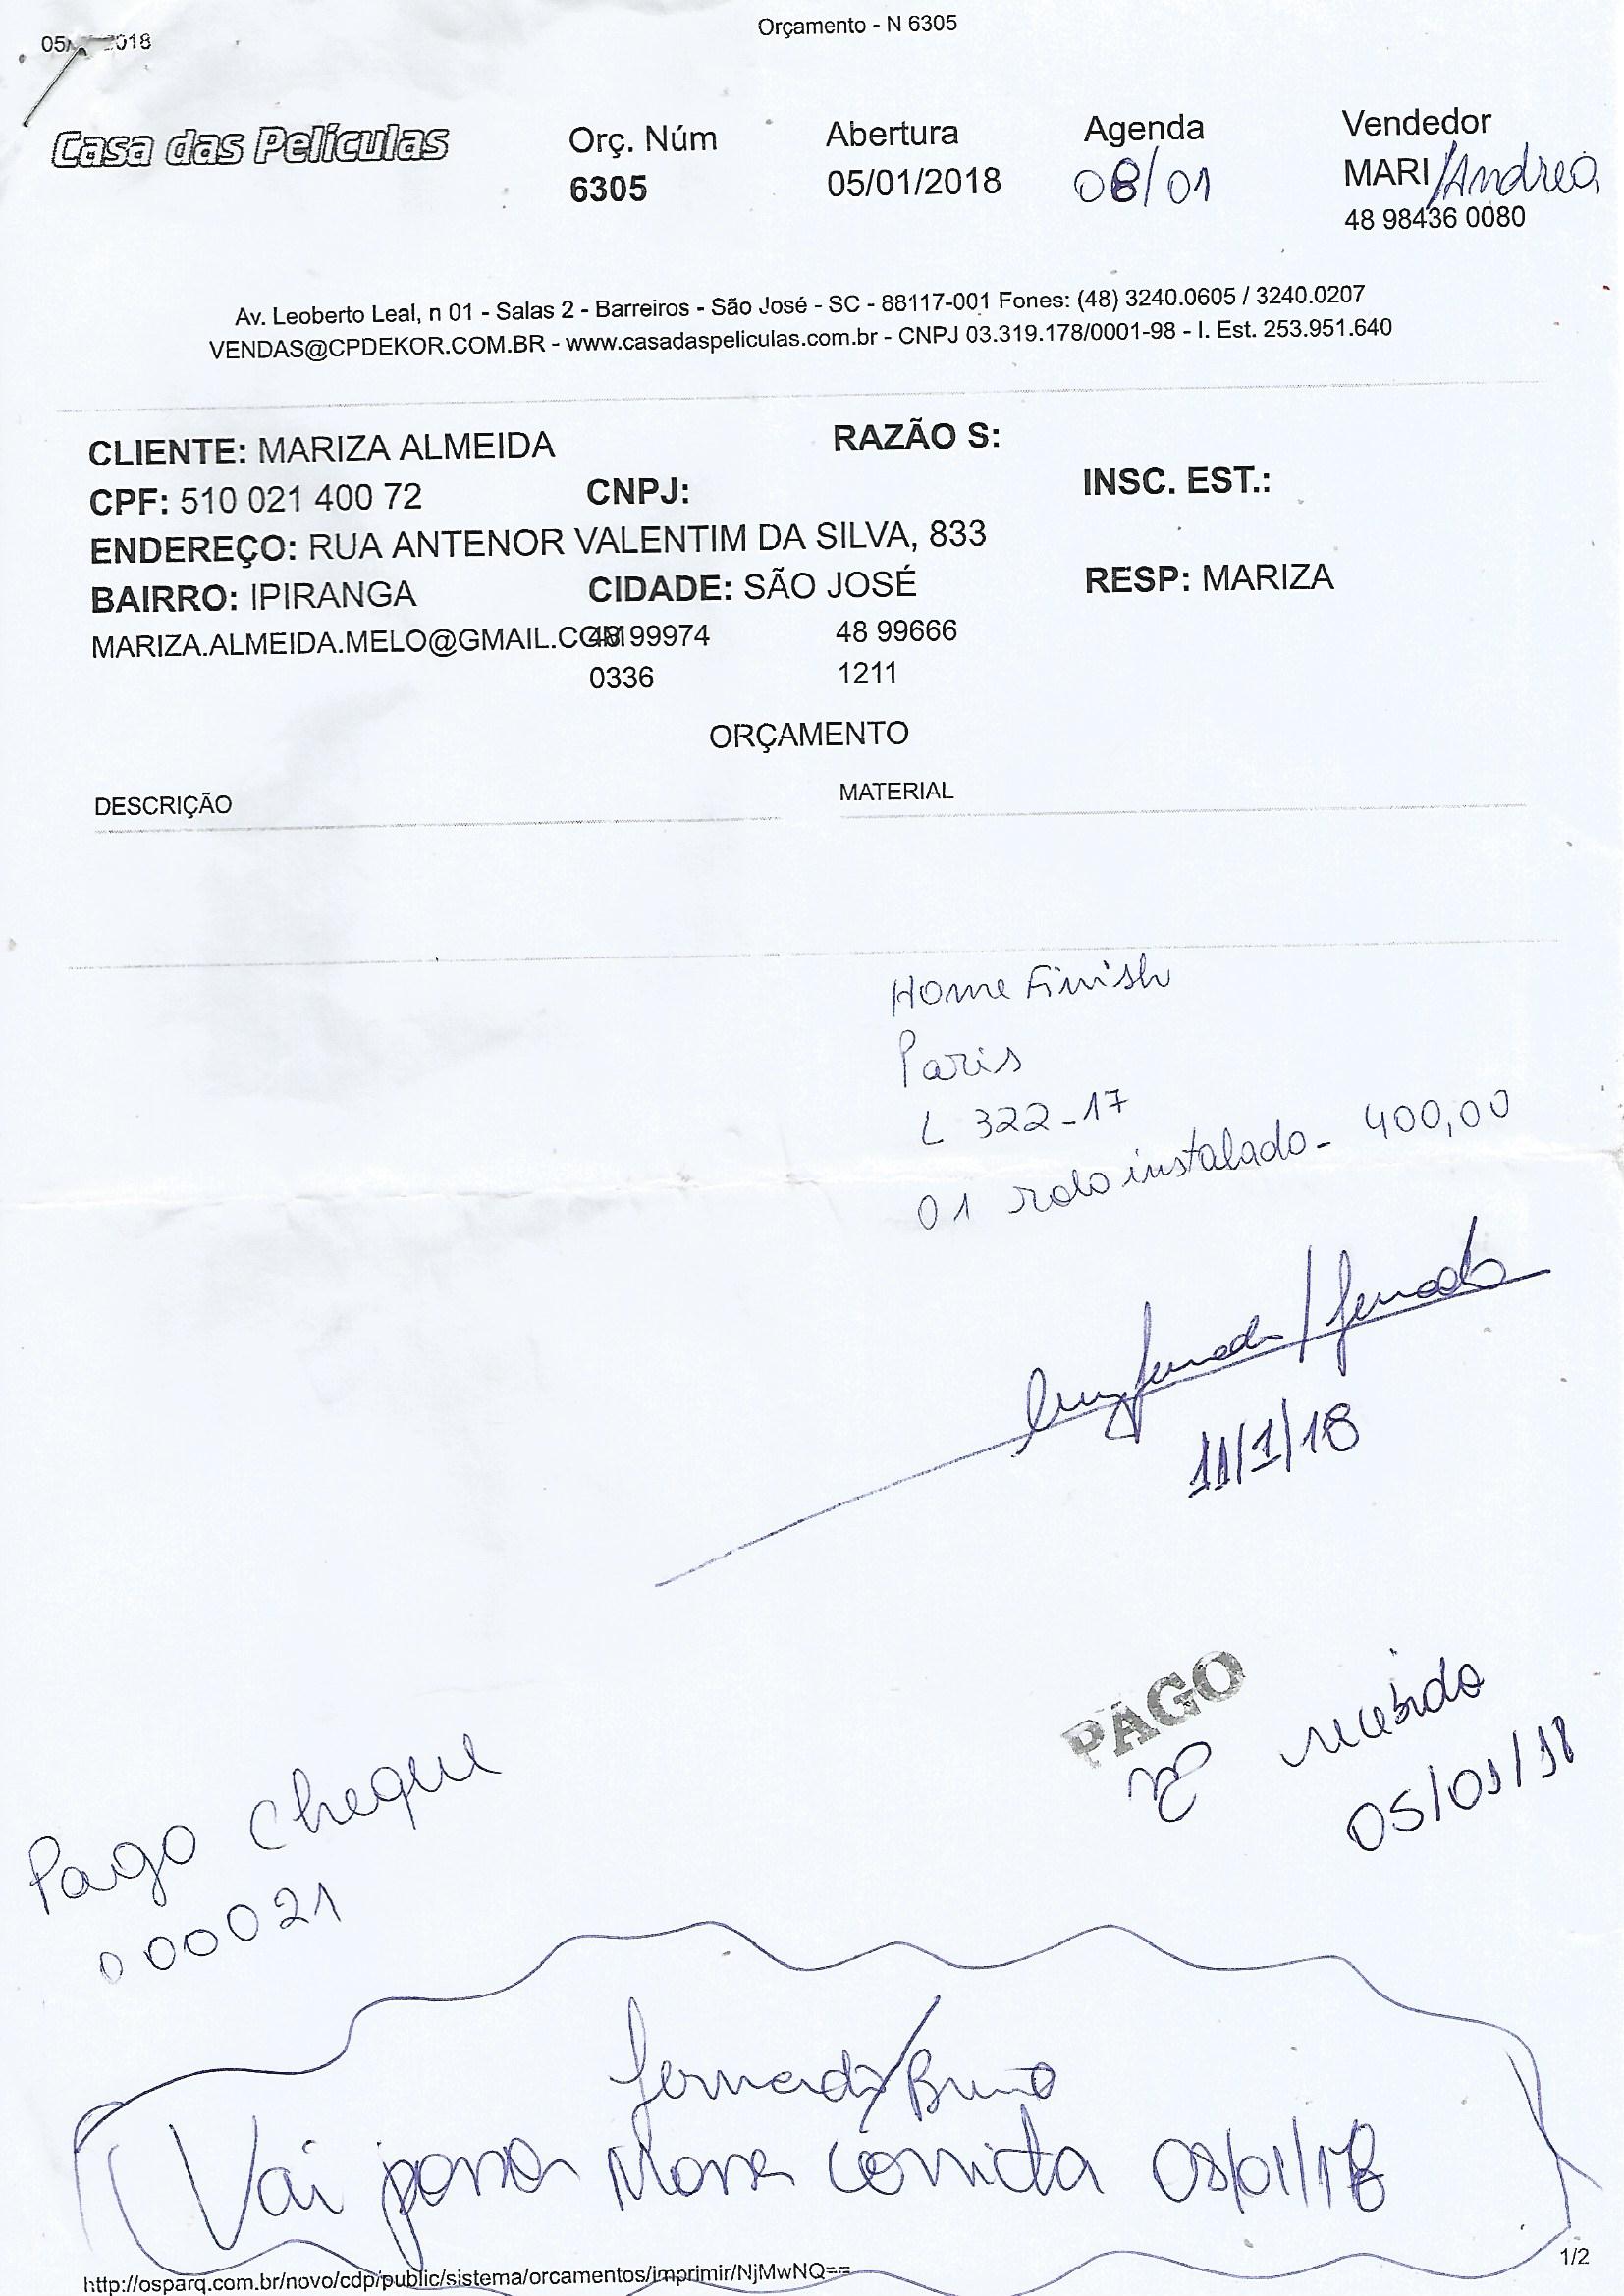 Orçamento - N 6305
Casa das Películas
Orç. Núm
6305
Abertura
05/01/2018
Agenda
08/01
Vendedor
MARI/Andrea
48 98436 0080
Av. Leoberto Leal, n 01 - Salas 2 - Barreiros - São José - SC - 88117-001 Fones: (48) 3240.0605 / 3240.0207
VENDAS@CPDEKOR.COM.BR - www.casadaspeliculas.com.br - CNPJ 03.319.178/0001-98 - I. Est. 253.951.640
CLIENTE: MARIZA ALMEIDA RAZÃO S:
CPF: 510 021 400 72 CNPJ: INSC. EST.:
ENDEREÇO: RUA ANTENOR VALENTIM DA SILVA, 833
BAIRRO: IPIRANGA CIDADE: SÃO JOSÉ RESP: MARIZA
MARIZA.ALMEIDA.MELO@GMAIL.COM 48 99974 48 99666
0336 1211
ORÇAMENTO
DESCRIÇÃO MATERIAL
Home Finish
Paris
L 322-17
01 rolo instalado - 400,00
11/1/18
PAGO
recebido
05/01/18
Pago cheque
000021
Fernando/Bruno
Vai passar Massa corrida 08/01/18
http://osparq.com.br/novo/cdp/public/sistema/orcamentos/imprimir/NjMwNQ==
1/2